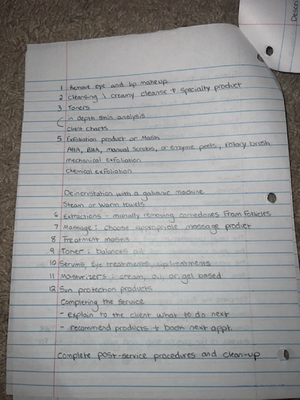 1 Remove eye and lip makeup
2 Cleansing \ creamy cleanse + specialty product
3 Toners
in depth skin analysis
client charts
5 Exfoliation product or mask
AHA, BHA, manual scrubs, or enzyme peels, rotary brush
mechanical exfoliation
chemical exfoliation
Desincrustation with a galvanic machine
Steam or warm towels
6 Extractions - manually removing comedones from follicles
7 Massage \ choose appropriate massage product
8 Treatment masks
9 Toner \ balances
10 Serums, eye treatments,
11 Moisturizers \ cream, oil, or gel based
12 Sun protection products
Completing the service
- explain to the client what to do next
- recommend products + book next appt.
Complete post-service procedures and clean-up